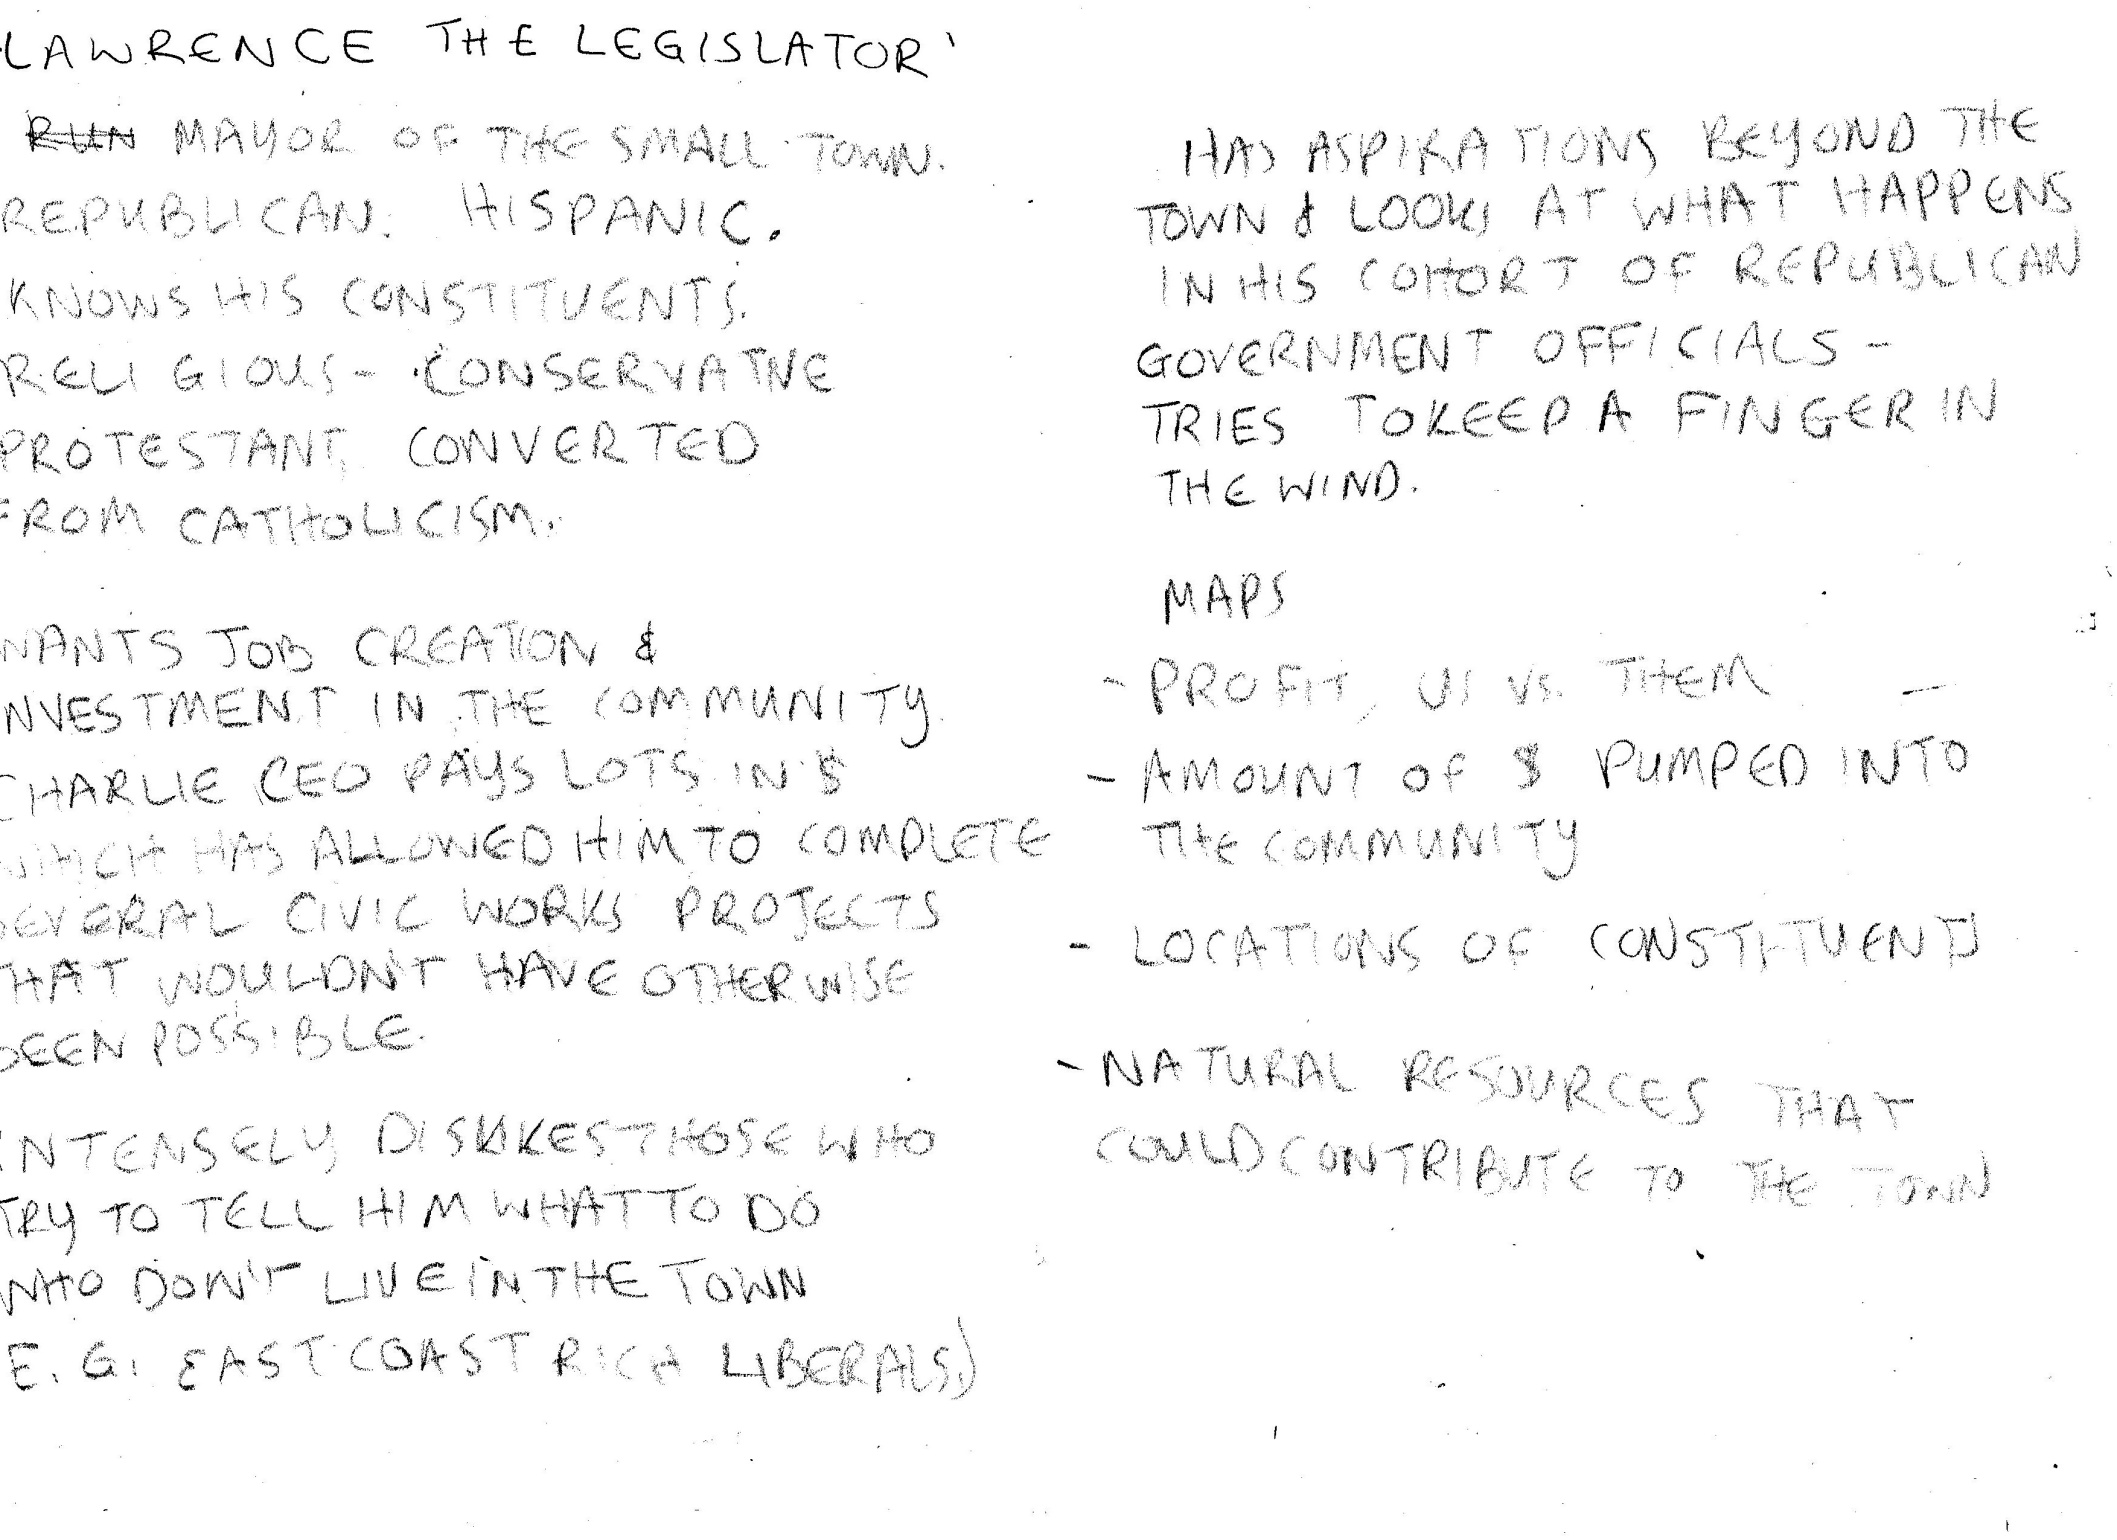 LAWRENCE THE LEGISLATOR'
RUN MAYOR OF THE SMALL TOWN.
REPUBLICAN. HISPANIC.
KNOWS HIS CONSTITUENTS.
RELIGIOUS - CONSERVATIVE
PROTESTANT, CONVERTED
FROM CATHOLICISM.
WANTS JOB CREATION &
INVESTMENT IN THE COMMUNITY.
CHARLIE CEO PAYS LOTS IN $
WHICH HAS ALLOWED HIM TO COMPLETE
SEVERAL CIVIC WORKS PROJECTS
THAT WOULDN'T HAVE OTHERWISE
BEEN POSSIBLE.
INTENSELY DISLIKES THOSE WHO
TRY TO TELL HIM WHAT TO DO
WHO DON'T LIVE IN THE TOWN
E.G. EAST COAST RICH LIBERALS.)
HAS ASPIRATIONS BEYOND THE
TOWN & LOOKS AT WHAT HAPPENS
IN HIS COHORT OF REPUBLICAN
GOVERNMENT OFFICIALS -
TRIES TO KEEP A FINGER IN
THE WIND.
MAPS
- PROFIT, US VS. THEM -
- AMOUNT OF $ PUMPED INTO
THE COMMUNITY
- LOCATIONS OF CONSTITUENTS
- NATURAL RESOURCES THAT
COULD CONTRIBUTE TO THE TOWN